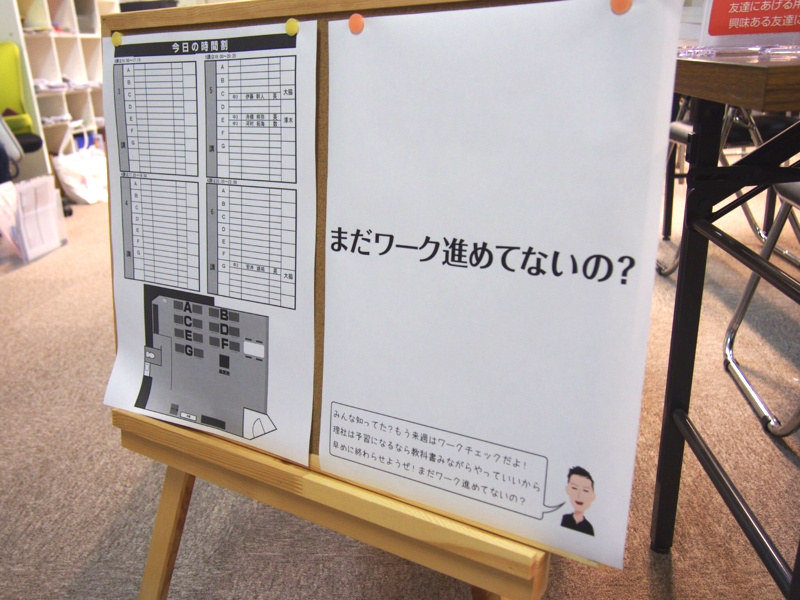 今日の時間割
A
B
C
D
E
F
G
講
5
A
B
C
D
E
F
G
大脇
講
4
A
B
C
D
E
F
G
講
6
A
B
C
D
E
F
G
大脇
講
A B
C D
E F
G
まだワーク進めてないの？
みんな知ってた？もう来週はワークチェックだよ！
理社は予習になるなら教科書みながらやっていいから
早めに終わらせようぜ！まだワーク進めてないの？
友達にあげる用
興味ある友達に